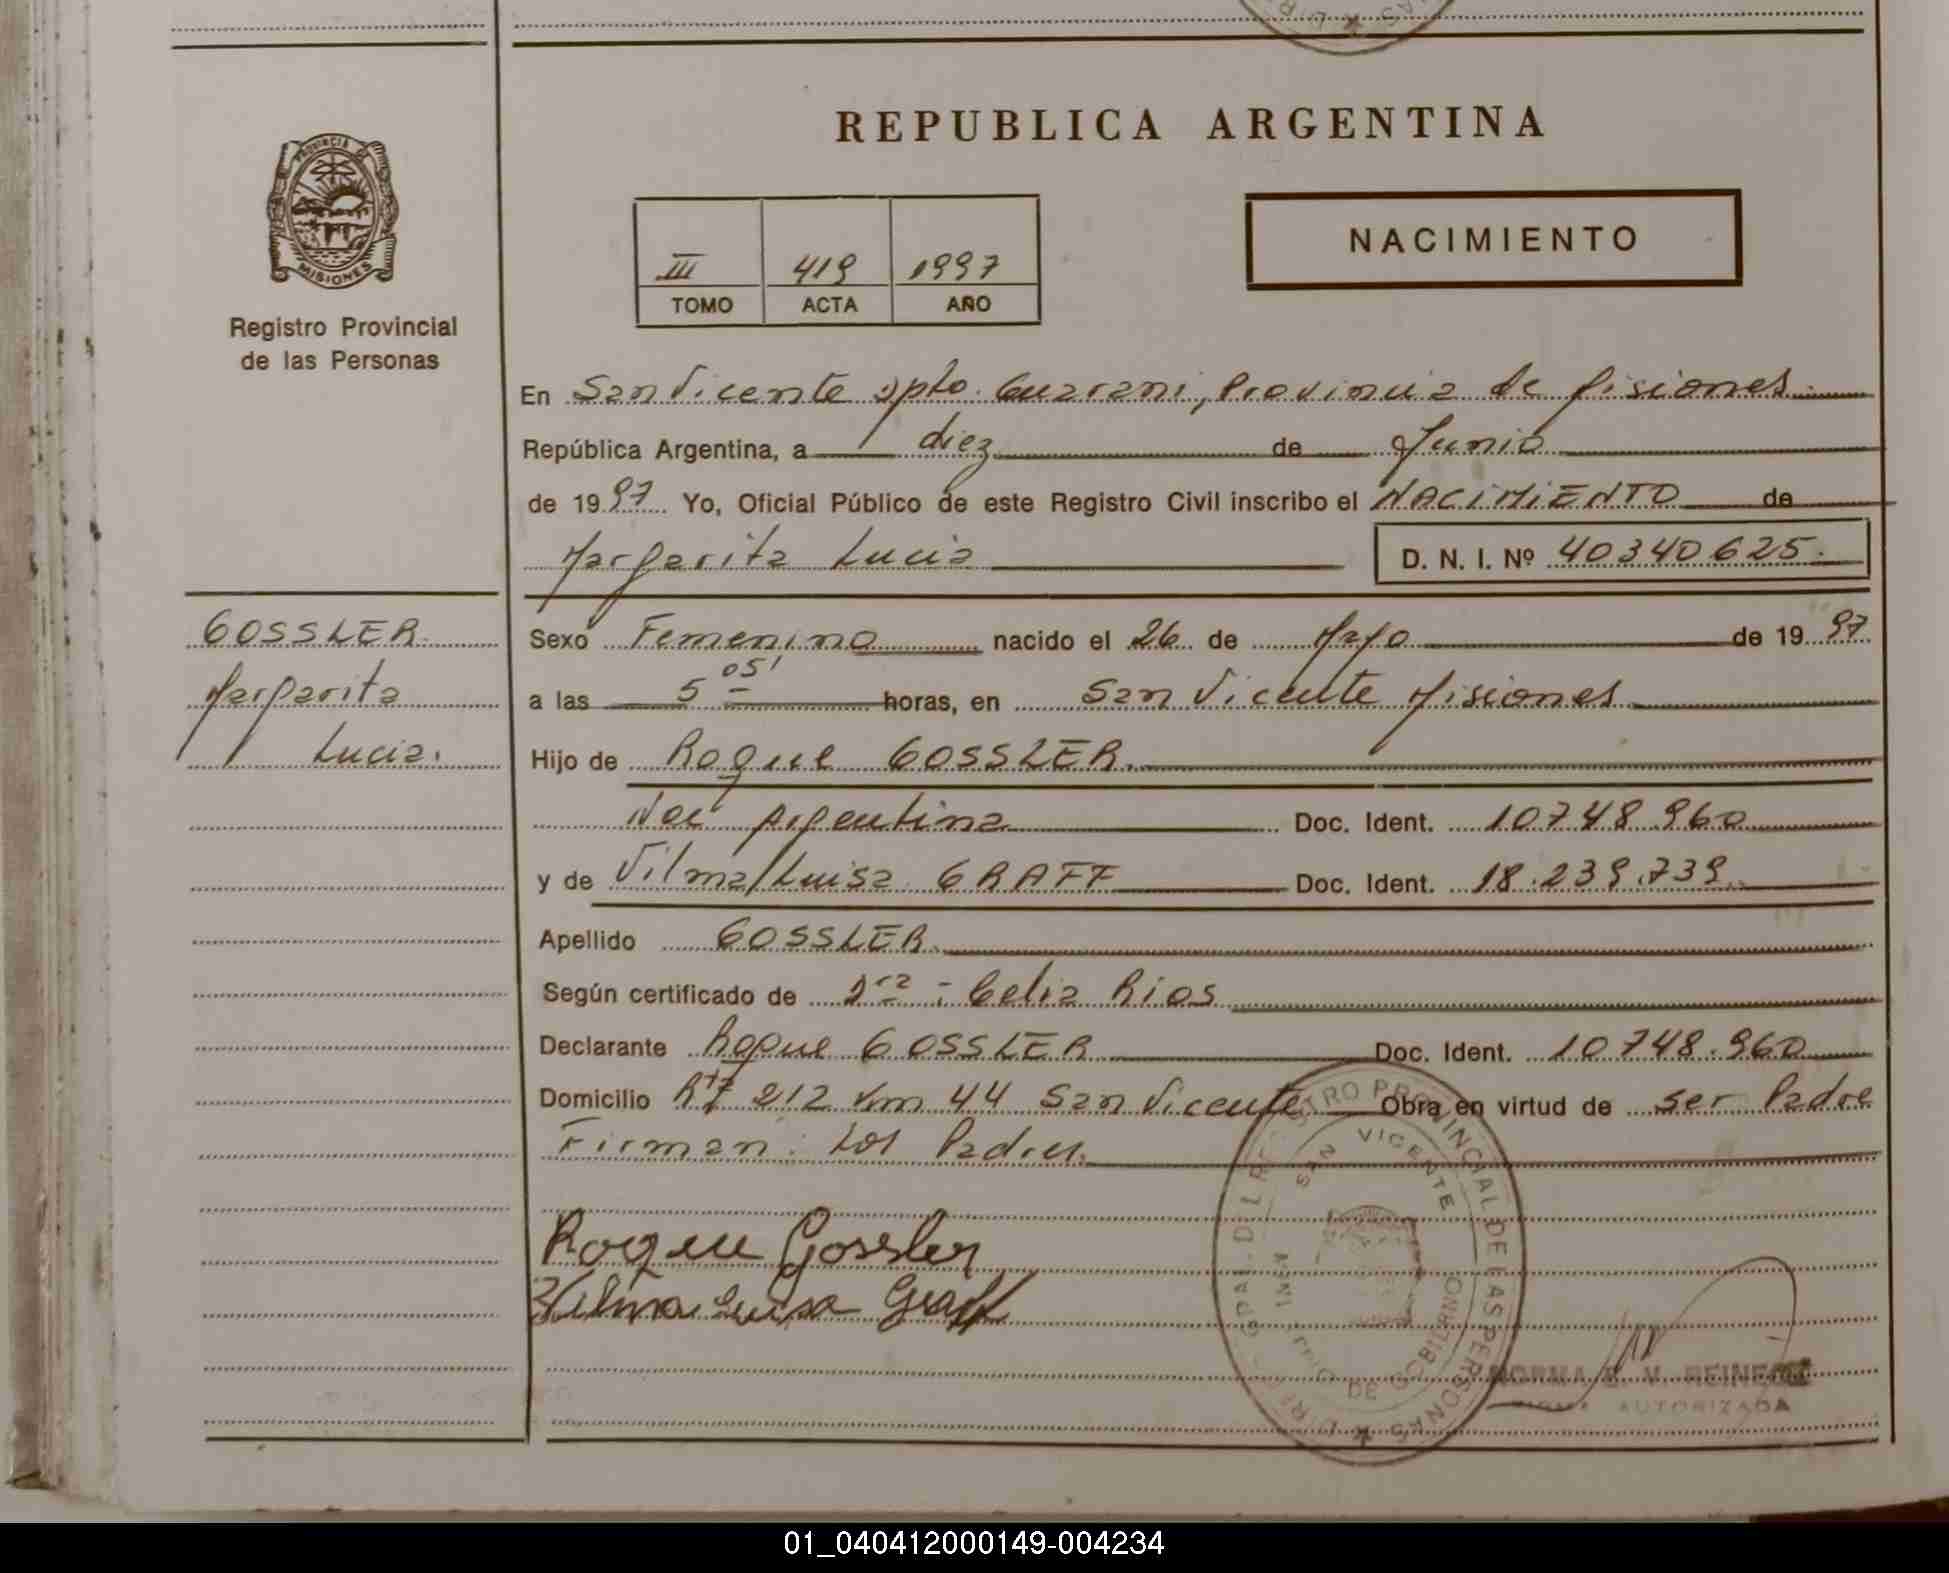 REPUBLICA ARGENTINA
PROVINCIA DE
MISIONES
Registro Provincial
de las Personas
III 419 1997
TOMO ACTA AÑO
NACIMIENTO
En San Vicente Dpto. Guarani, Provincia de Misiones.
República Argentina, a diez de Junio
de 1997 Yo, Oficial Público de este Registro Civil inscribo el NACIMIENTO de
Margarita Lucia D. N. I. Nº 40340625.
GOSSLER
Margarita
Lucia.
Sexo Femenino nacido el 26 de Mayo de 1997
a las 5 05' horas, en San Vicente Misiones
Hijo de Roque GOSSLER.
Nac Argentina Doc. Ident. 10748960
y de Vilma Luisa GRAFF Doc. Ident. 18.239.739.
Apellido GOSSLER.
Según certificado de Dra - Celia Rios
Declarante Roque GOSSLER Doc. Ident. 10748.960
Domicilio Rta 212 km 44 San Vicente Obra en virtud de ser Padre
Firman: Los Padres.
Roque Gossler
Vilma Luisa Graff
REGISTRO PROVINCIAL DE LAS PERSONAS
SAN VICENTE
DE GOBIERNO
NORMA E. V. REINECKE
AUTORIZADA
01_040412000149-004234